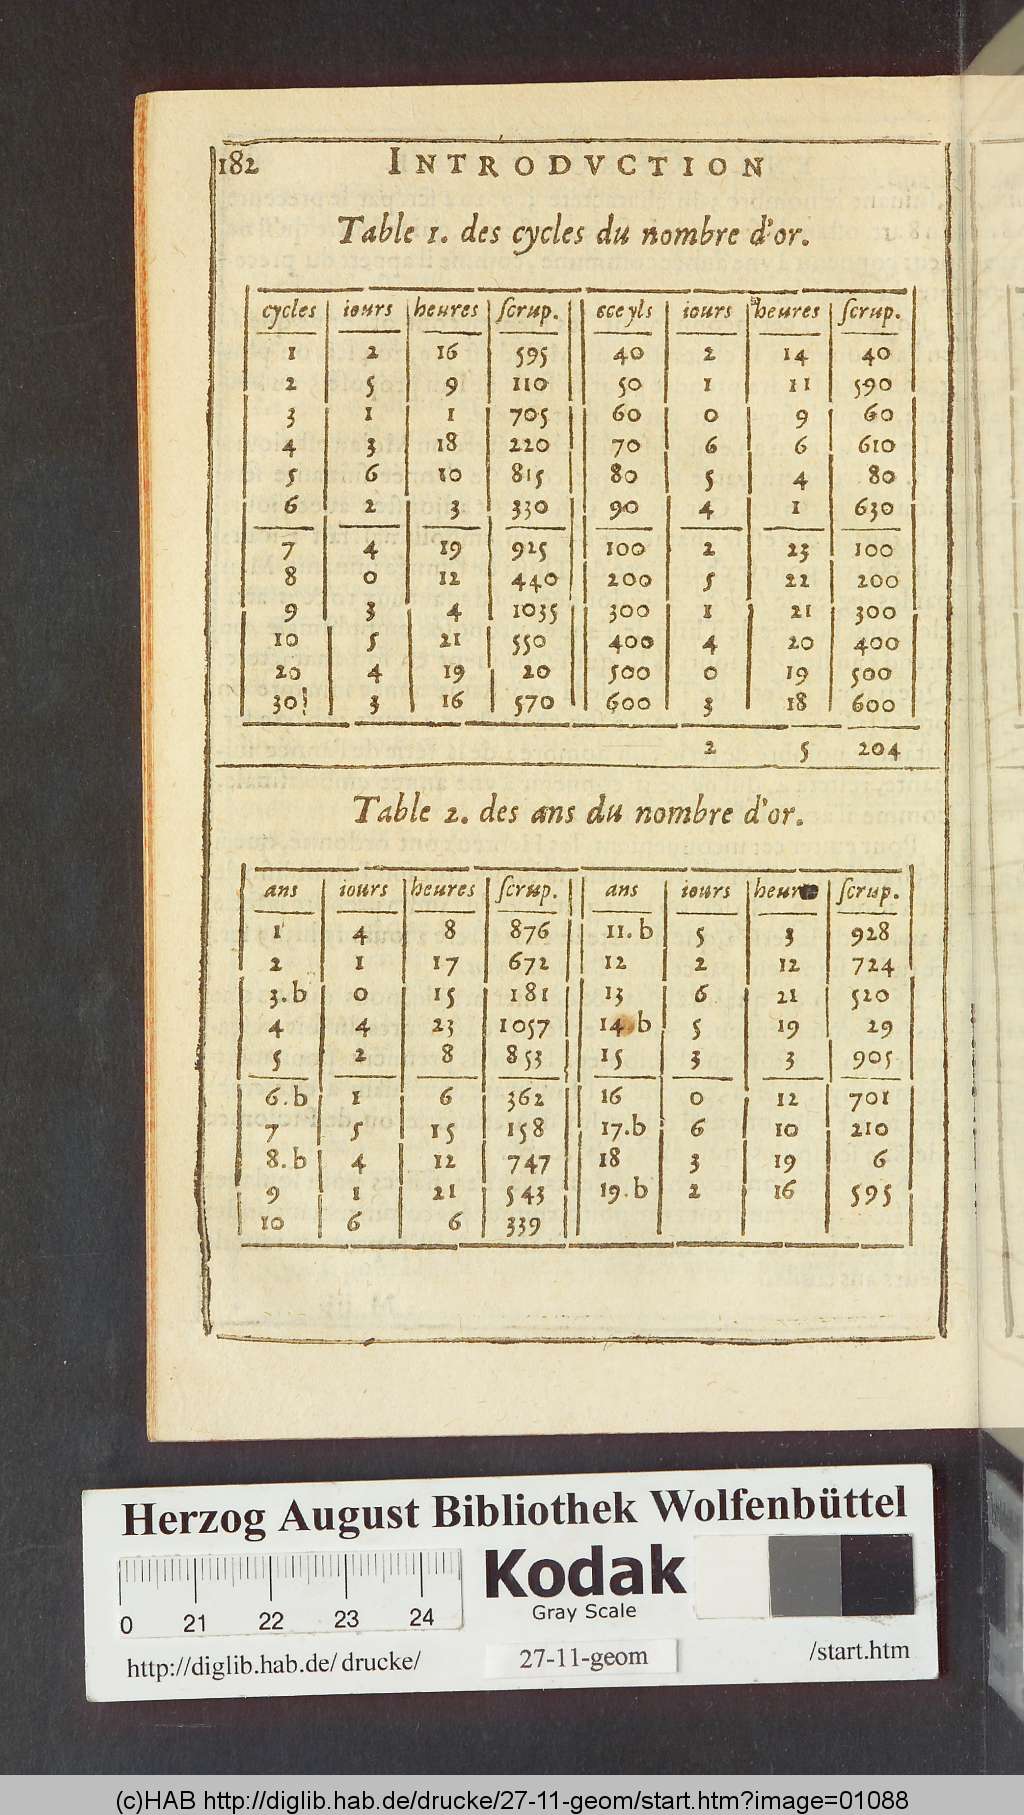 182 INTRODVCTION
Table 1. des cycles du nombre d'or.
cycles iours heures ſcrup. cceyls iours heures ſcrup.
1 2 16 595 40 2 14 40
2 5 9 110 50 1 11 590
3 1 1 705 60 0 9 60
4 3 18 220 70 6 6 610
5 6 10 815 80 5 4 80
6 2 3 330 90 4 1 630
7 4 19 925 100 2 23 100
8 0 12 440 200 5 22 200
9 3 4 1035 300 1 21 300
10 5 21 550 400 4 20 400
20 4 19 20 500 0 19 500
30 3 16 570 600 3 18 600
2 5 204
Table 2. des ans du nombre d'or.
ans iours heures ſcrup. ans iours heures ſcrup.
1 4 8 876 11.b 5 3 928
2 1 17 672 12 2 12 724
3.b 0 15 181 13 6 21 520
4 4 23 1057 14.b 5 19 29
5 2 8 853 15 3 3 905
6.b 1 6 362 16 0 12 701
7 5 15 158 17.b 6 10 210
8.b 4 12 747 18 3 19 6
9 1 21 543 19.b 2 16 595
10 6 6 339
Herzog August Bibliothek Wolfenbüttel
Kodak
Gray Scale
0 21 22 23 24
http://diglib.hab.de/ drucke/ 27-11-geom /start.htm
(c)HAB http://diglib.hab.de/drucke/27-11-geom/start.htm?image=01088